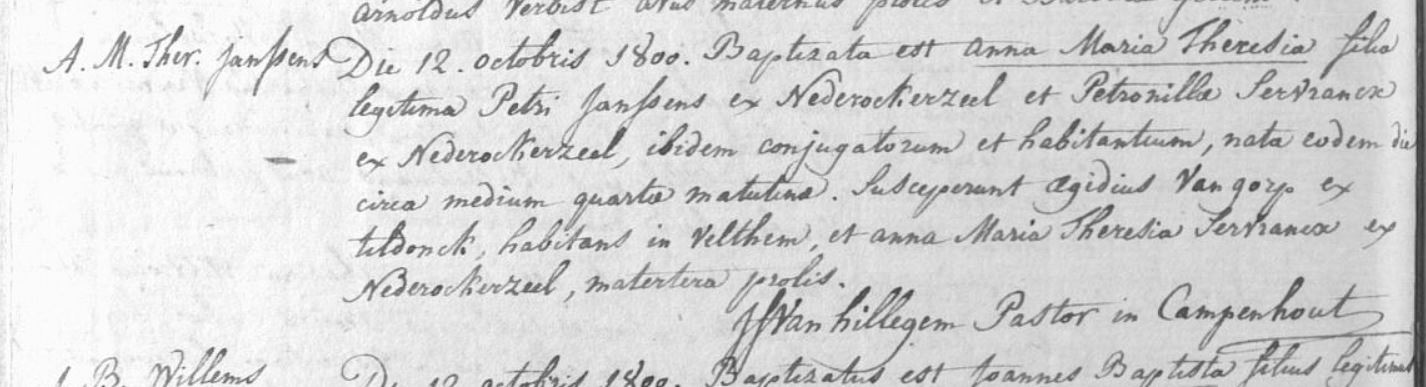 Arnoldus Verbist avus maternus prolis et
A. M. Ther. Janssens Die 12. octobris 1800. Baptizata est Anna Maria Theresia filia
legitima Petri Janssens ex Nederockerzeel et Petronillæ Servrancx
ex Nederockerzeel, ibidem conjugatorum et habitantium, nata eodem die
circa medium quartæ matutinæ. Susceperunt Ægidius Van gorp ex
tildonck, habitans in Velthem, et anna Maria Theresia Servrancx ex
Nederockerzeel, matertera prolis.
Van hillegem Pastor in Campenhout
J. B. Willems Die 12 octobris 1800. Baptizatus est Joannes Baptista filius legitimus